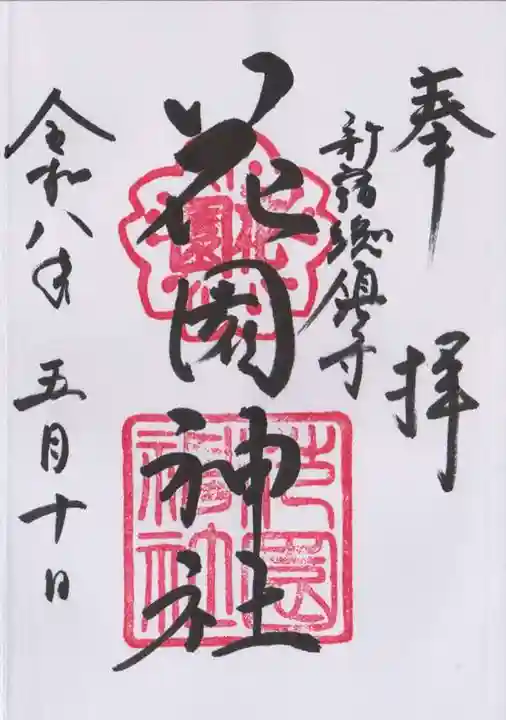 奉拝
新宿総鎮守
花園神社
花園
花園神社
令和八年 五月十日